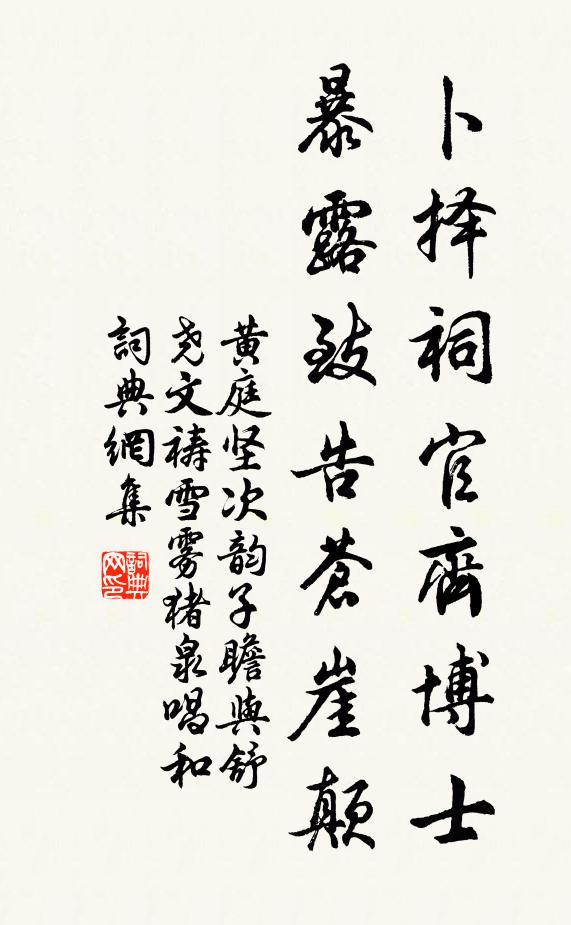 卜择祠官齊博士
暴露致告蒼崖颠
黄庭坚次韵子瞻與舒
尧文禱雪雾猪泉唱和
詞典網集
詞典网印